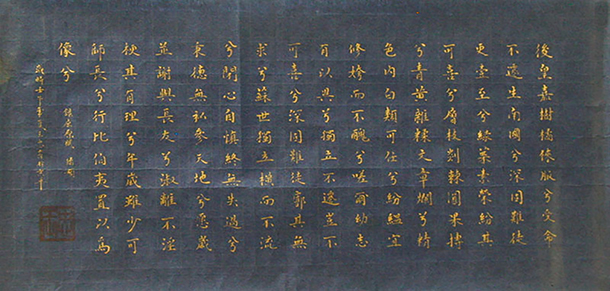 後皇嘉樹橘徠服兮受命
不遷生南國兮深固難徙
更壹至兮綠葉素榮紛其
可喜兮層枝剡棘圓果摶
兮青黃雜糅文章爛兮精
色內白類可任兮紛縕宜
修姱而不醜兮嗟爾幼志
有以異兮獨立不遷豈不
可喜兮深固難徙廓其無
求兮蘇世獨立橫而不流
兮閉心自慎終無失過兮
秉德無私參天地兮愿歲
並謝與長友兮淑離不淫
梗其有理兮年歲雖少可
師長兮行比伯夷置以為
像兮
屈原 橘頌